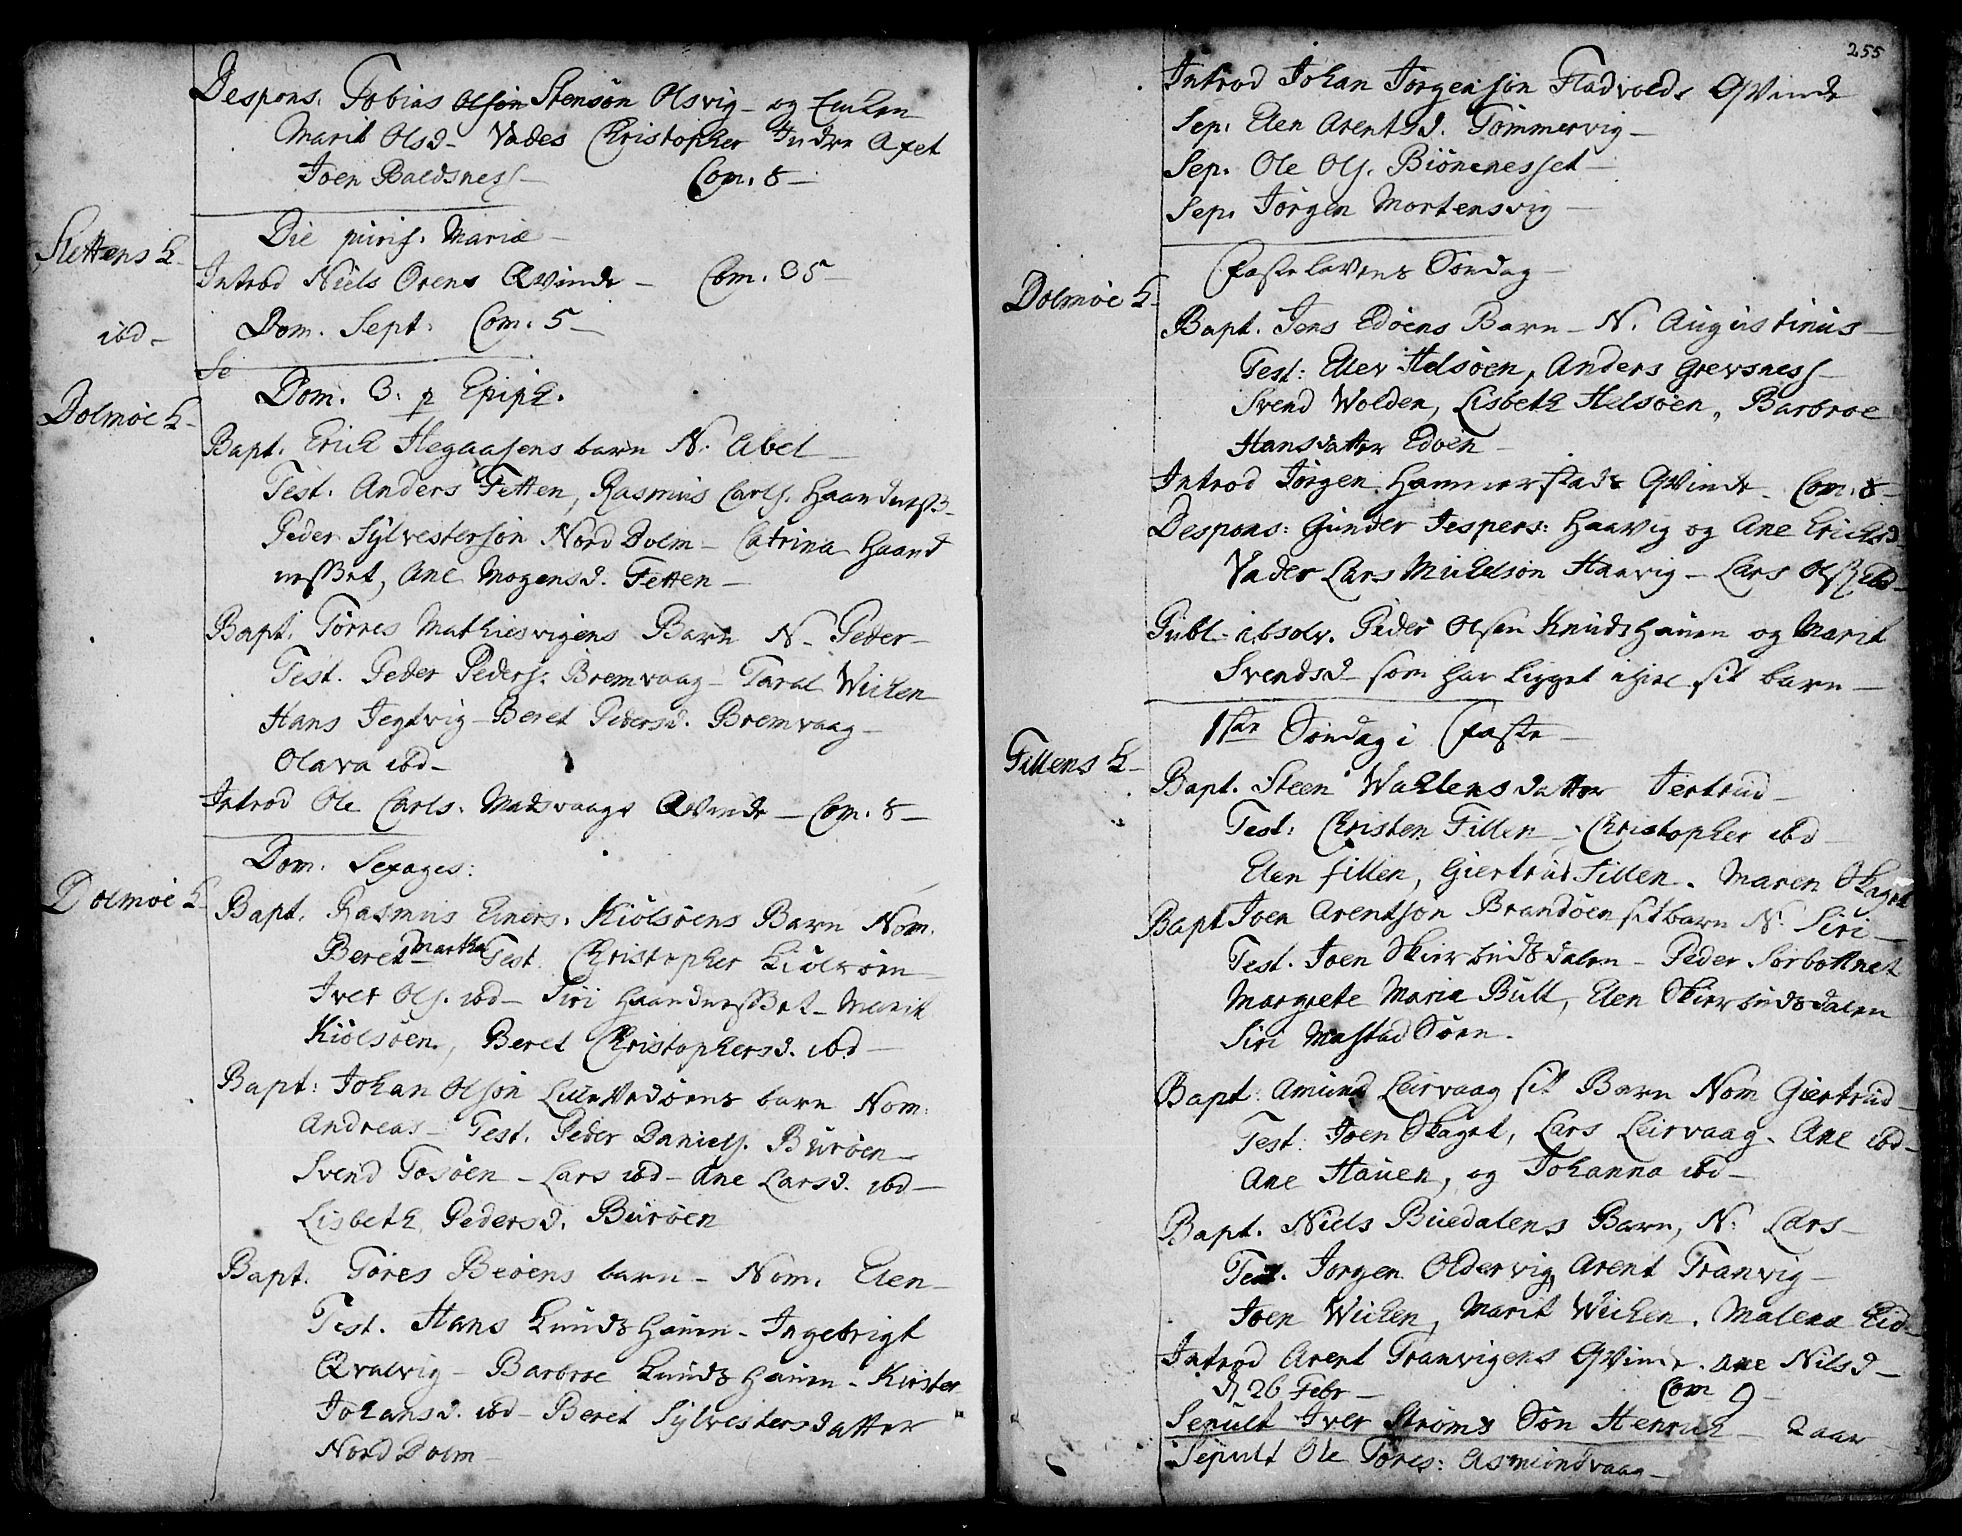 Despons. Tobias Olsøn Stensøn Olsvig – og Enken
Marit Olsd – Vades Christopher Indre Axet
Joen Baldsness – Com. 8 –
Die purif. Mariæ –
Slettens K –
Introd Niels Ørens Qvinde – Com. 35 –
ibd –
Dom. Sept: Com. 5 –
Se
Dom. 3. p Epiph.
Dolmøe K –
Bapt. Erich Hegaasens barn N. Abel –
Test. Anders Fetten, Rasmus Carls. Haandness
Peder Sylvestersøn Nord Dolm – Catrina Haand
nesset, Ane Mogensd. Fetten –
Bapt. Torres Mathiesvigens Barn N – Petter –
Test. Petter Peders. Bremvaag – Taral Wichen
Hans Jegtvig – Beret Pedersd. Bremvaag –
Olava ibd –
Introd Ole Carls. Madsvaags Qvinde – Com. 8 –
Dom. Sexages:
Dolmøe K
Bapt. Rasmus Einers. Kiølsøens Barn Nom.
Beret Martha Test. Christopher Kiølsøen
Iver Ols. ibd – Siri Haandnesset – Marit
Kiølsøen, Beret Christophersd. ibd –
Bapt: Johan Olsøn Lille Vedøens barn Nom:
Andreas – Test. Peder Daniels. Burøen –
Svend Tosøen – Lars ibd – Ane Larsd. ibd –
Lisbeth Pedersd. Burøen
Bapt. Tøres Beøens barn – Nom. Elen –
Test. Hans Knudshauen – Ingebrigt
Qvalvig – Barbroe Knudshauen – Kirsten
Johansd. ibd – Beret Sylvestersdatter
Nord Dolm –
255
Introd Johan Jørgensøn Fladvolds Qvinde
Sep. Elen Arentsd. Tømmervig –
Sep. Ole Ols. Biønenesset –
Sep. Jørgen Mortensvig –
Fastelavens Søndag –
Dolmøe K –
Bapt. Jens Edøens Barn – N. Augustinus –
Test: Elev Helsøen, Anders Grevsness –
Svend Wolden, Lisbeth Helsøen, Barbroe
Hansdatter Edøen –
Introd Jørgen Hammerstads Qvinde – Com. 8 –
Despons: Gunder Jespers: Haavig og Ane Erichsd –
Vader Lars Michelsøn Haavig – Lars Ols. ibd –
Publ. absolv. Peder Olsen Knudshauen og Marit
Svendsd – som har ligget ihiel sit barn –
1ste Søndag i Faste –
Fillens K –
Bapt. Steen Wahlens datter Jertrud –
Test: Christen Fillen – Christopher ibd –
Elen Fillen, Giertrud Fillen. Maren Skaget
Bapt Joen Arentsøn Brandøen sit barn N. Siri –
Test. Joen Skiærbudsdalen – Peder Sorbottnet
Margrete Maria Bull, Elen Skiærbudsdalen
Siri Mastad Søen.
Bapt: Amund Leirvaag sit Barn Nom Giertrud –
Test: Joen Skaget, Lars Leirvaag. Ane ibd –
Ane Hauen, og Johanna ibd –
Bapt. Niels Buedalens Barn, N: Lars –
Test. Jørgen Oldervig, Arent Tranvig –
Joen Wichen, Marit Wichen. Malena Eid –
Introd Arent Tranvigens Qvinde. Ane Nilsd –
d 26 Febr – Com 9 –
Sepult Iver Strøms Søn Henrich – 2 aar
Sepult Ole Tores: Asmundvaag –